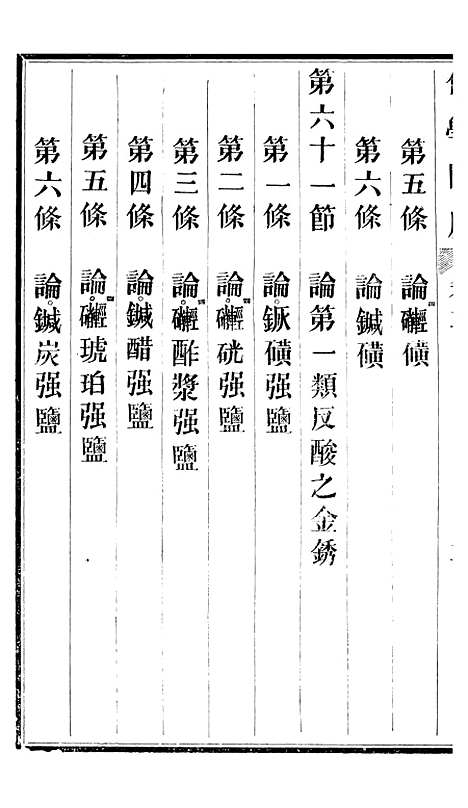 第五條　論䃘磺
第六條　論鏚磺
第六十一節　論第一類反酸之金銹
第一條　論鈬磺强鹽
第二條　論䃘硄强鹽
第三條　論䃘酢漿强鹽
第四條　論鏚醋强鹽
第五條　論䃘琥珀强鹽
第六條　論鏚炭强鹽